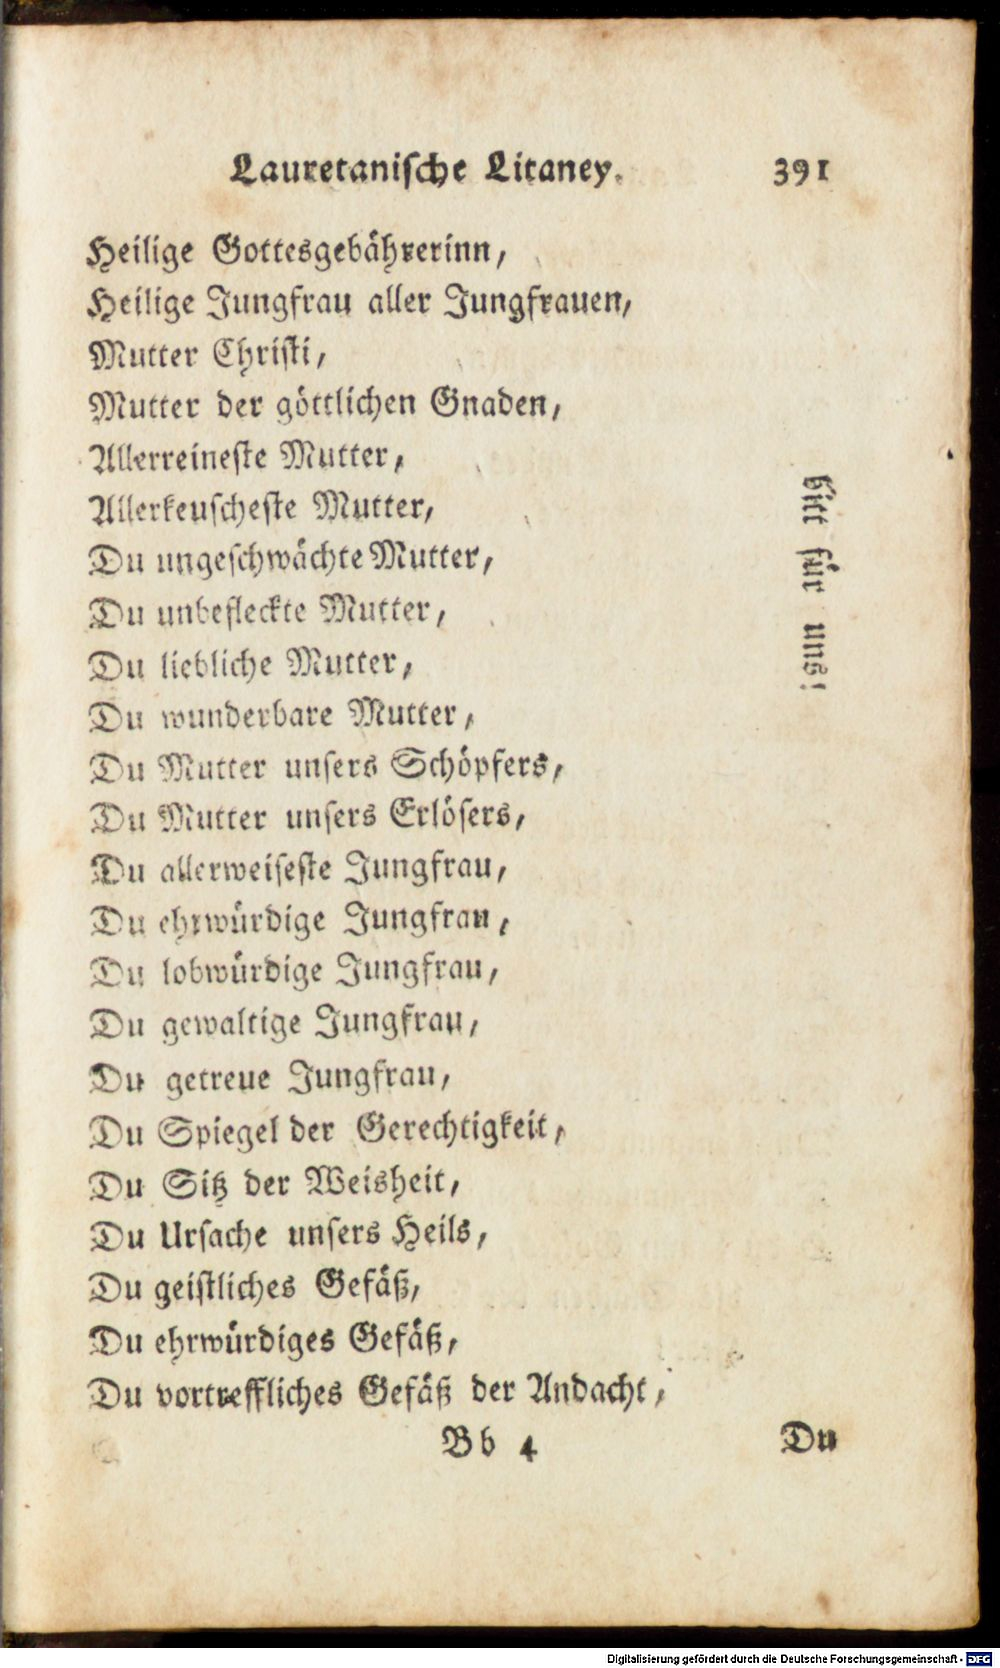 Lauretanische Litaney. 391
Heilige Gottesgebährerinn,
Heilige Jungfrau aller Jungfrauen,
Mutter Christi,
Mutter der göttlichen Gnaden,
Allerreineste Mutter,
Allerkeuscheste Mutter,
Du ungeschwächte Mutter,
Du unbefleckte Mutter,
Du liebliche Mutter,
Du wunderbare Mutter,
Du Mutter unsers Schöpfers,
Du Mutter unsers Erlösers,
Du allerweiseste Jungfrau,
Du ehrwürdige Jungfrau,
Du lobwürdige Jungfrau,
Du gewaltige Jungfrau,
Du getreue Jungfrau,
Du Spiegel der Gerechtigkeit,
Du Sitz der Weisheit,
Du Ursache unsers Heils,
Du geistliches Gefäß,
Du ehrwürdiges Gefäß,
Du vortreffliches Gefäß der Andacht,
bitt für uns!
Bb 4 Du
Digitalisierung gefördert durch die Deutsche Forschungsgemeinschaft - DFG